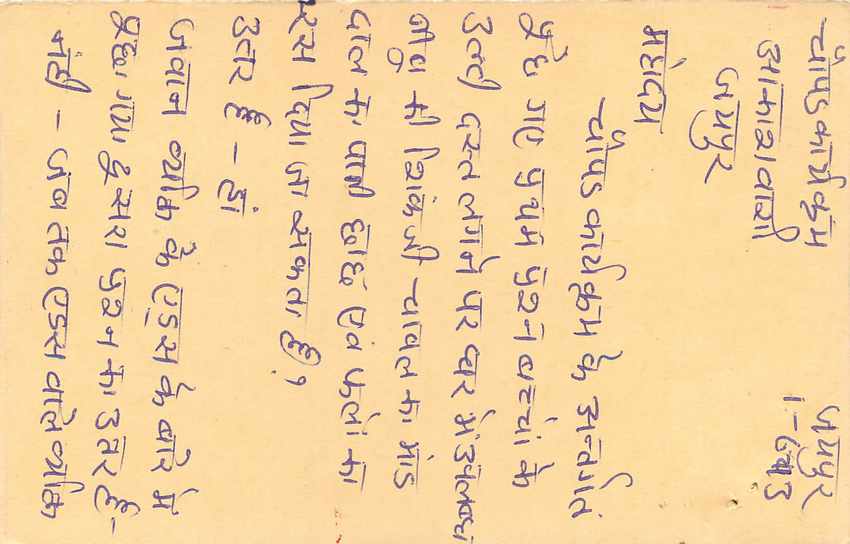 चौपड कार्यक्रम जयपुर
आकाशवाणी
जयपुर
महोदय
चौपड कार्यक्रम के अन्तर्गत
पुछे गए प्रथम प्रश्न बच्चो के
उल्टी दस्त लगने पर घर मे उपलब्ध
नीबु की शिकंजी चावल का मांड
दाल का पानी छाछ एवं फलो का
रस दिया जा सकता है?
उतर है - हां
जवान व्यक्ति के एडस के बारे मे
पुछा गया दुसरा प्रश्न का उतर है-
नही - जब तक एडस वाले व्यक्ति